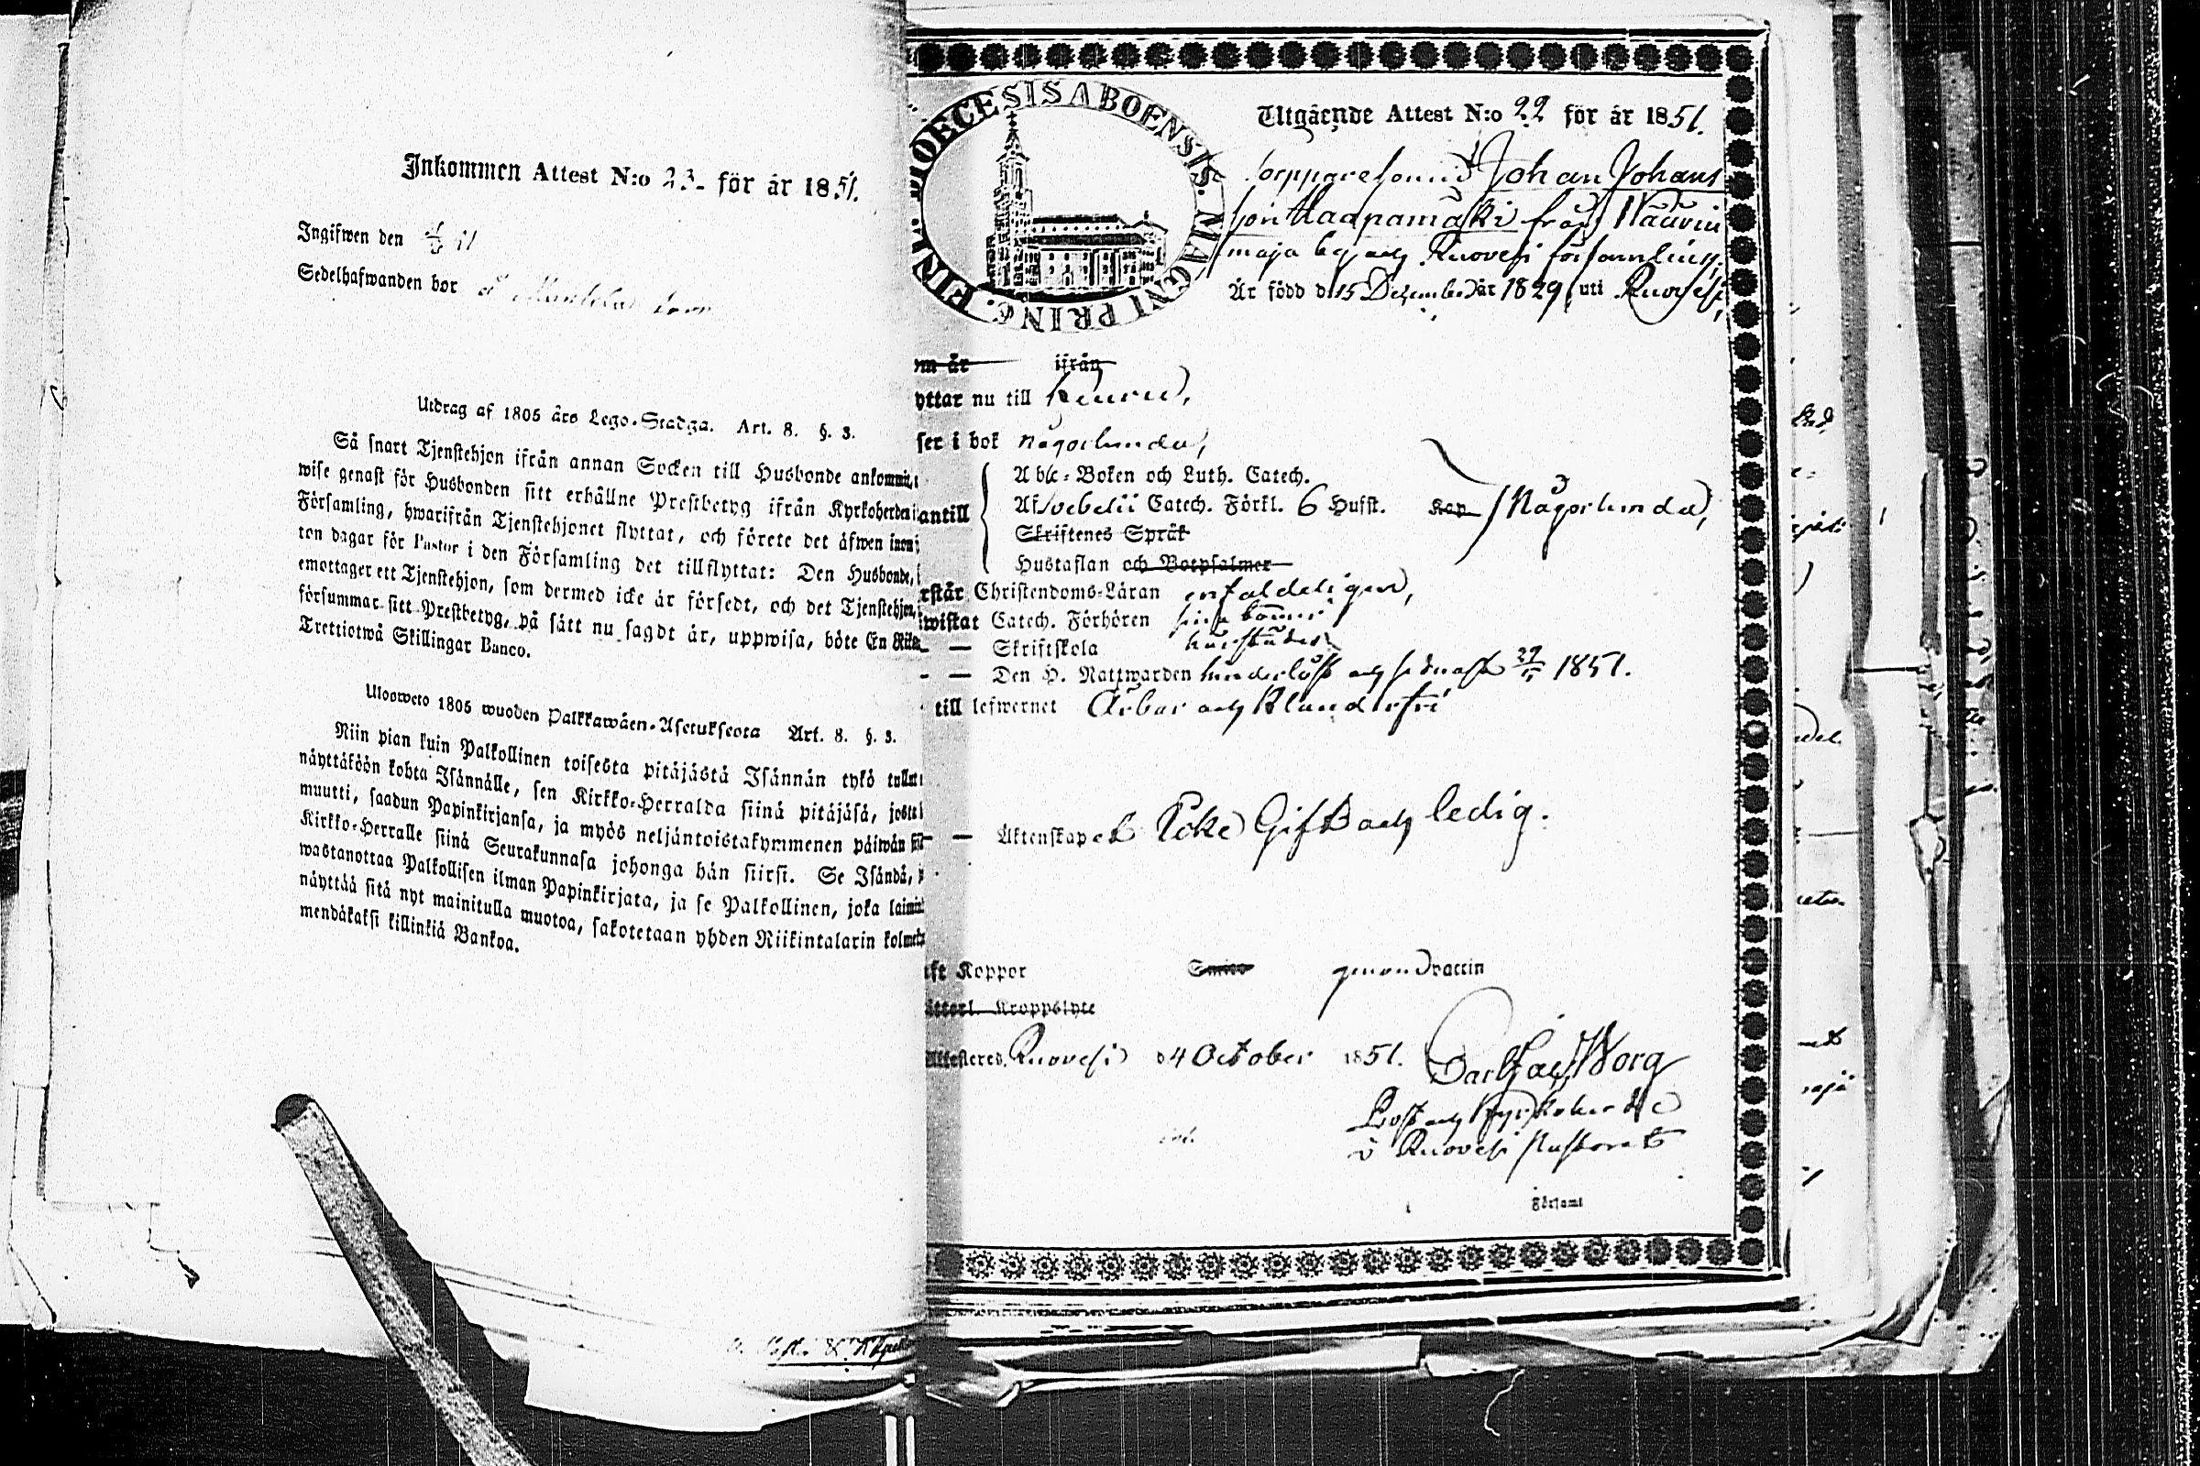 Inkommen Attest N:o 23. för år 1851.
Ingifwen den
Sedelhafwanden bor
Utdrag af 1805 års Lego-Stadga. Art. 8. §. 3.
Så snart Tjenstehjon ifrån annan Socken till Husbonde ankommit,
wise genast för Husbonden sitt erhållne Prestbetyg ifrån Kyrkoherden i
Församling, hwarifrån Tjenstehjonet flyttat, och förete det äfwen inom
ton dagar för Pastor i den Församling det tillflyttat: Den Husbonde,
emottager ett Tjenstehjon, som dermed icke är försedt, och det Tjenstehjon,
försummar sitt Prestbetyg, på sätt nu sagdt är, uppwisa, böte En Riks
Trettiotwå Skillingar Banco.
Ulosweto 1805 wuoden Palkkawäen-Asetuksesta Art. 8. §. 3.
Niin pian kuin Palkollinen toisesta pitäjästä Isännän tykö tullut
näyttäköön kohta Isännälle, sen Kirkko-Herralda siinä pitäjäsä, josta
muutti, saadun Papinkirjansa, ja myös neljäntoistakymmenen päiwän
Kirkko-Herralle siinä Seurakunnasa johonga hän siirsi. Se Isändä,
wastanottaa Palkollisen ilman Papinkirjata, ja se Palkollinen, joka laimin
näyttää sitä nyt mainitulla muotoa, sakotetaan yhden Riikintalarin kolme
mendäkaksi killinkiä Bankoa.
DIOECESIS ABOENSIS. MAGNI PRINC. FINL.
Utgående Attest N:o 22 för år 1851.
Torpparesonen Johan Johans
son Haapamäki från Wäärin
maja by och Ruovesi församling,
Är född d. 15 Dezember år 1829, uti Ruovesi,
om år ifrån
yttar nu till Keuru,
ser i bok någorlunda,
A b c-Boken och Luth. Catech.
antill Af Svebelii Catech. Förkl. 6 Hufst. Kap någorlunda,
Skriftenes Språk
Hustaflan och Botpsalmer
rstår Christendoms-Läran enfaldeligen,
iwistat Catech. Förhören
— Skriftskola
— Den H. Nattwarden och sednast 1851.
till lefwernet Ärbar och Klanderfri
— Äktenskapet Icke Gift och ledig.
aft Koppor genom vaccin
ätterl. Kroppslyte
Attesteres. Ruovesi d 4 October 1851.
Prost och Kyrkoherde
i Ruovesi Pastorat
Församl